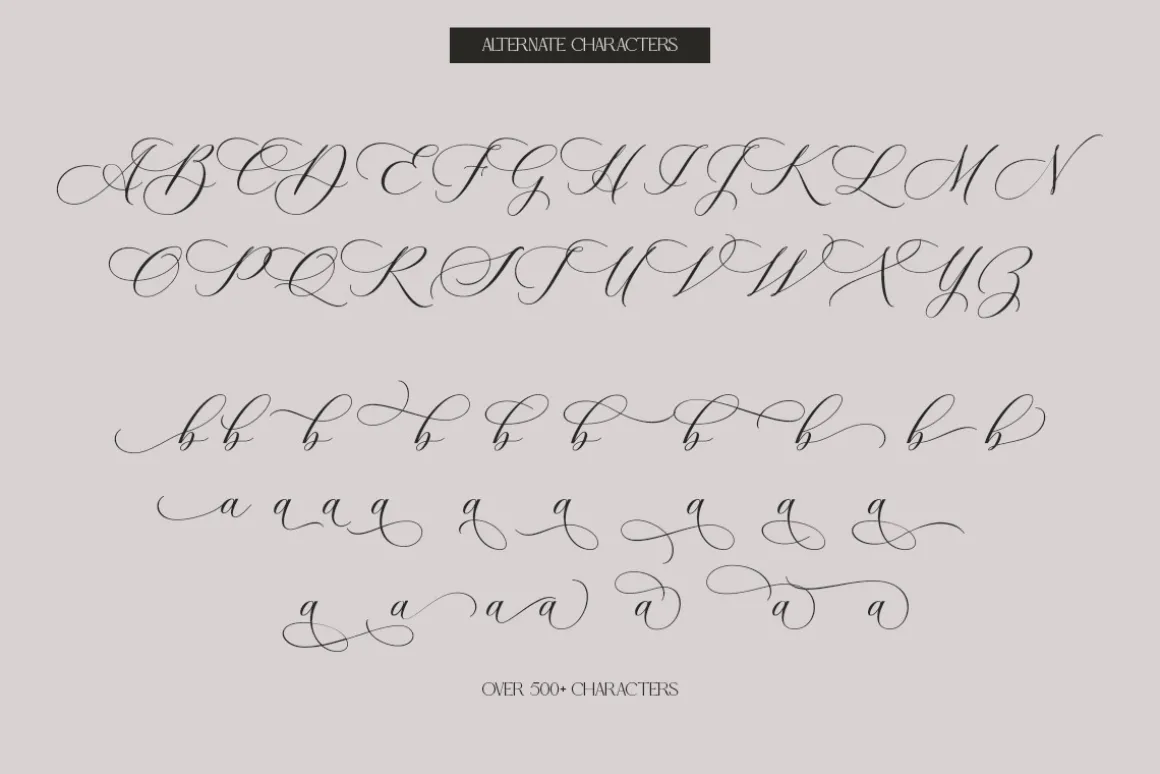 ALTERNATE CHARACTERS
A B C D E F G H I J K L M N
O P Q R S T U V W X Y Z
b b b b b b b b b b
a a a a a a a a a
a a a a a a a
OVER 500+ CHARACTERS